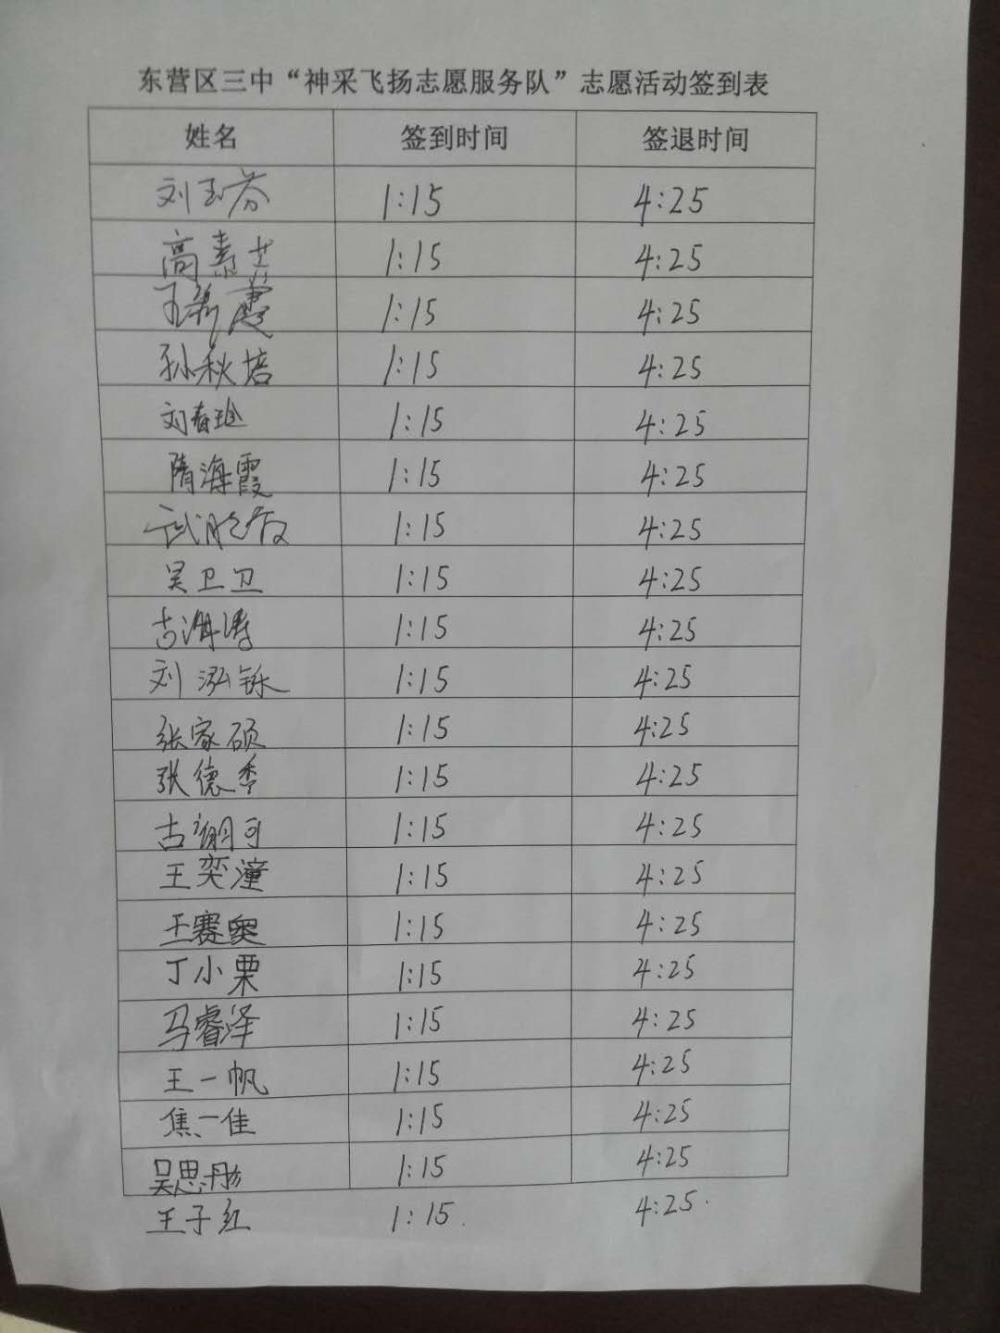 东营区三中“神采飞扬志愿服务队”志愿活动签到表
姓名 签到时间 签退时间
刘玉芬 1:15 4:25
高素芳 1:15 4:25
王 霞 1:15 4:25
孙秋培 1:15 4:25
刘春 1:15 4:25
隋海霞 1:15 4:25
武 1:15 4:25
吴卫卫 1:15 4:25
古 涛 1:15 4:25
刘泓铄 1:15 4:25
张家硕 1:15 4:25
张德香 1:15 4:25
古 可 1:15 4:25
王奕潼 1:15 4:25
王赛奥 1:15 4:25
丁小栗 1:15 4:25
马睿泽 1:15 4:25
王一帆 1:15 4:25
焦一佳 1:15 4:25
吴思彤 1:15 4:25
王子红 1:15. 4:25.